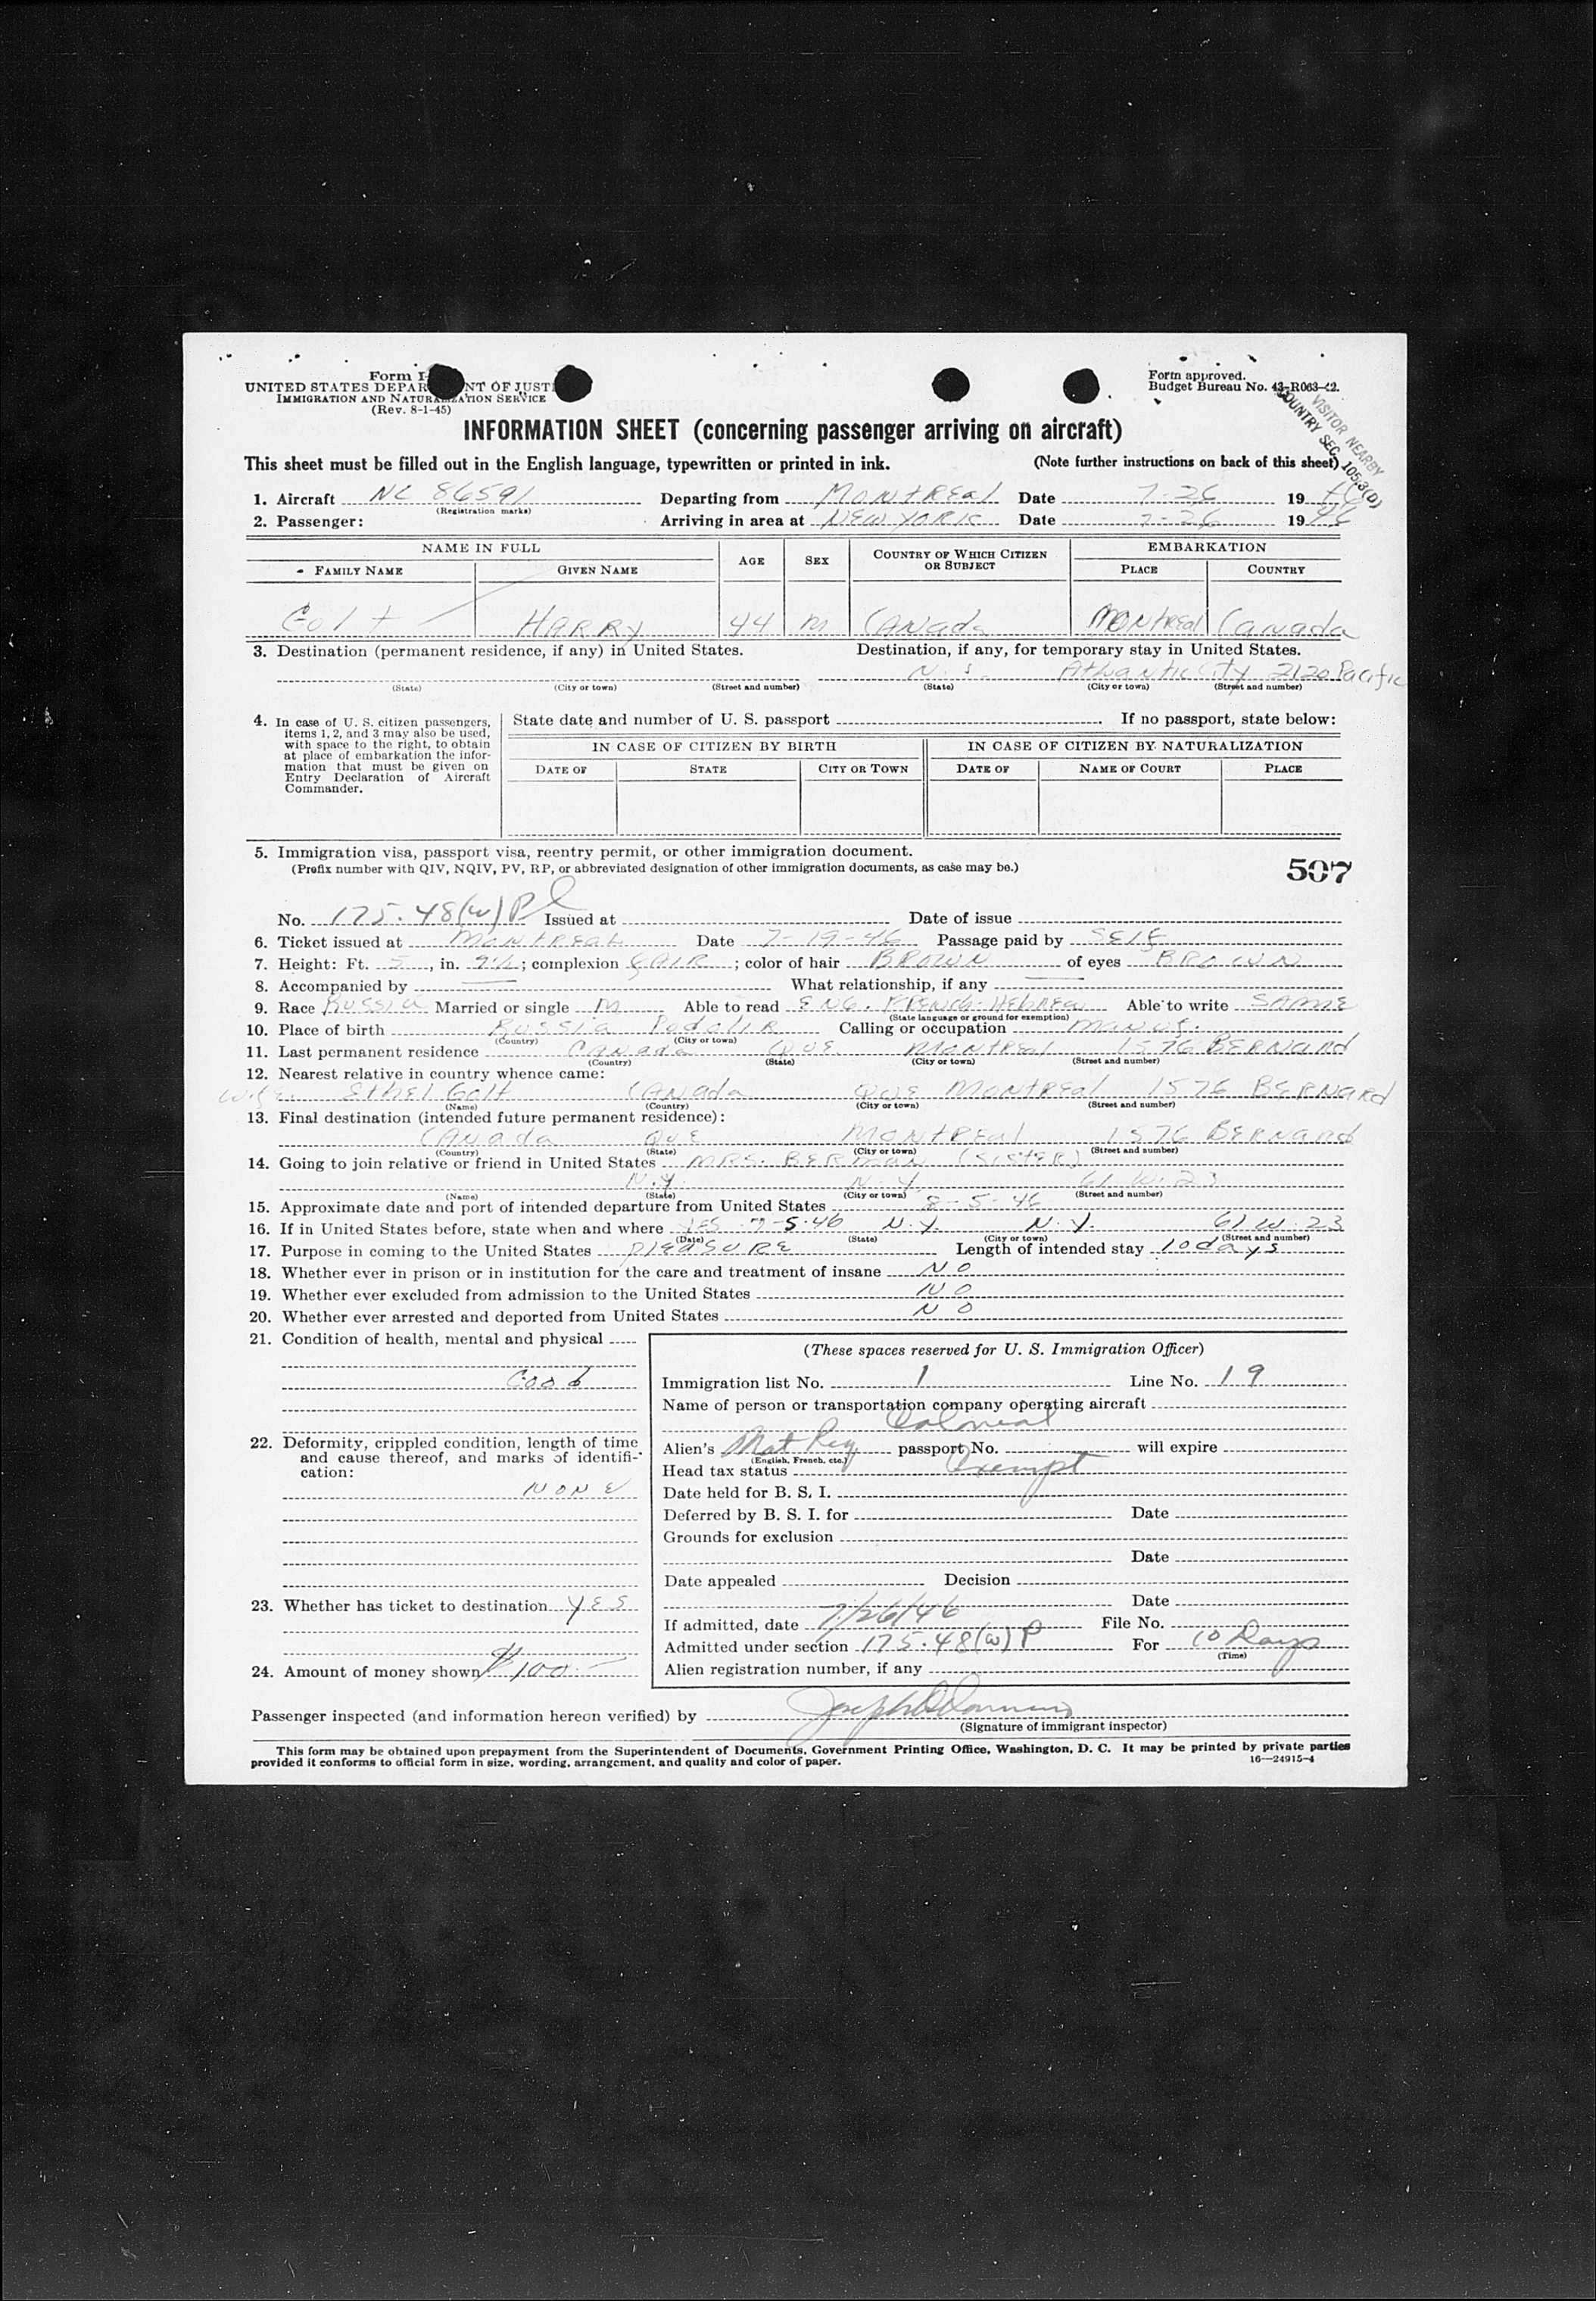 Form I-
UNITED STATES DEPAR NT OF JUST
IMMIGRATION AND NATURALIZATION SERVICE
(Rev. 8-1-45)
Form approved.
Budget Bureau No. 43-R063-42.
VISITOR NEARBY
COUNTRY SEC. 105.3(D)
INFORMATION SHEET (concerning passenger arriving on aircraft)
This sheet must be filled out in the English language, typewritten or printed in ink. (Note further instructions on back of this sheet)
1. Aircraft NC 86591 Departing from MONTREAL Date 7-26 1946
(Registration marks)
2. Passenger: Arriving in area at NEW YORK Date 7-26 1946
NAME IN FULL AGE SEX COUNTRY OF WHICH CITIZEN OR SUBJECT EMBARKATION
FAMILY NAME GIVEN NAME PLACE COUNTRY
Golt HARRY 44 M CANADA MONTREAL CANADA
3. Destination (permanent residence, if any) in United States. Destination, if any, for temporary stay in United States.
N.J. Atlantic City 2120 Pacific
(State) (City or town) (Street and number) (State) (City or town) (Street and number)
4. In case of U. S. citizen passengers, items 1, 2, and 3 may also be used, with space to the right, to obtain at place of embarkation the information that must be given on Entry Declaration of Aircraft Commander.
State date and number of U. S. passport If no passport, state below:
IN CASE OF CITIZEN BY BIRTH IN CASE OF CITIZEN BY NATURALIZATION
DATE OF STATE CITY OR TOWN DATE OF NAME OF COURT PLACE
5. Immigration visa, passport visa, reentry permit, or other immigration document.
(Prefix number with QIV, NQIV, PV, RP, or abbreviated designation of other immigration documents, as case may be.)
507
No. 175.48(w)P Issued at Date of issue
6. Ticket issued at MONTREAL Date 7-19-46 Passage paid by SELF
7. Height: Ft. 5, in. 9½; complexion FAIR; color of hair BROWN of eyes BROWN
8. Accompanied by — What relationship, if any —
9. Race RUSSIA Married or single M Able to read ENG. FRENCH. HEBREW Able to write SAME
(State language or ground for exemption)
10. Place of birth RUSSIA PODOLIA Calling or occupation MANUF.
(Country) (City or town)
11. Last permanent residence CANADA QUE. MONTREAL 1576 BERNARD
(Country) (State) (City or town) (Street and number)
12. Nearest relative in country whence came:
Wife. Ethel Golt CANADA QUE MONTREAL 1576 BERNARD
(Name) (Country) (City or town) (Street and number)
13. Final destination (intended future permanent residence):
CANADA QUE MONTREAL 1576 BERNARD
(Country) (State) (City or town) (Street and number)
14. Going to join relative or friend in United States MRS. BERMAN (SISTER)
N.Y. N.Y 61 W. 23
(Name) (State) (City or town) (Street and number)
15. Approximate date and port of intended departure from United States 8-5-46
16. If in United States before, state when and where YES 7-5-46 N.Y. N.Y. 61 W. 23
(Date) (State) (City or town) (Street and number)
17. Purpose in coming to the United States PLEASURE Length of intended stay 10 days
18. Whether ever in prison or in institution for the care and treatment of insane NO
19. Whether ever excluded from admission to the United States NO
20. Whether ever arrested and deported from United States NO
21. Condition of health, mental and physical
Good
22. Deformity, crippled condition, length of time and cause thereof, and marks of identification:
NONE
23. Whether has ticket to destination YES
24. Amount of money shown $100.—
(These spaces reserved for U. S. Immigration Officer)
Immigration list No. 1 Line No. 19
Name of person or transportation company operating aircraft
Colonial
Alien's Nat Reg passport No. will expire
(English, French, etc.)
Head tax status Exempt
Date held for B. S. I.
Deferred by B. S. I. for Date
Grounds for exclusion
Date
Date appealed Decision
Date
If admitted, date 7/26/46 File No.
Admitted under section 175.48(w)P For 10 Days
(Time)
Alien registration number, if any
Passenger inspected (and information hereon verified) by Joseph
(Signature of immigrant inspector)
This form may be obtained upon prepayment from the Superintendent of Documents, Government Printing Office, Washington, D. C. It may be printed by private parties
provided it conforms to official form in size, wording, arrangement, and quality and color of paper. 16—24915-4